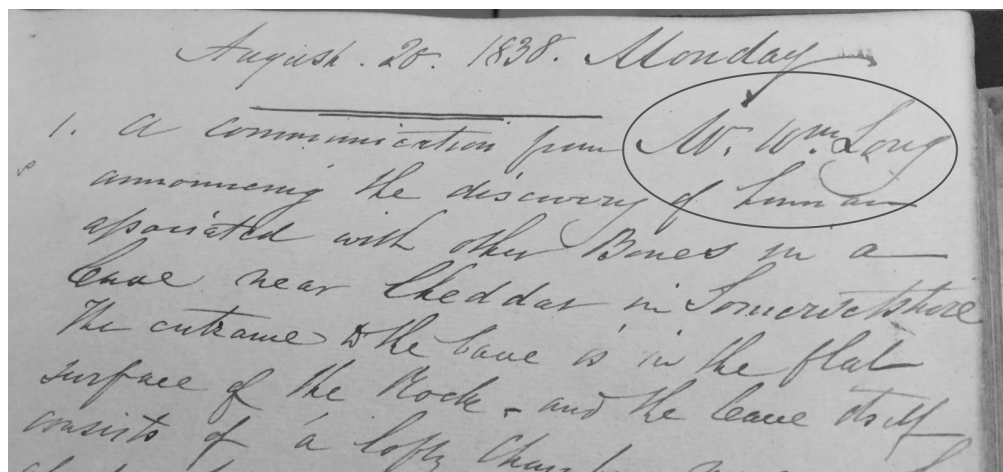 August. 20. 1838. Monday
1. A communication from Mr. Wm. Long
announcing the discovery of human
associated with other Bones in a
Cave near Cheddar in Somersetshire
The entrance to the Cave is in the flat
surface of the Rock - and the Cave itself
consists of a lofty